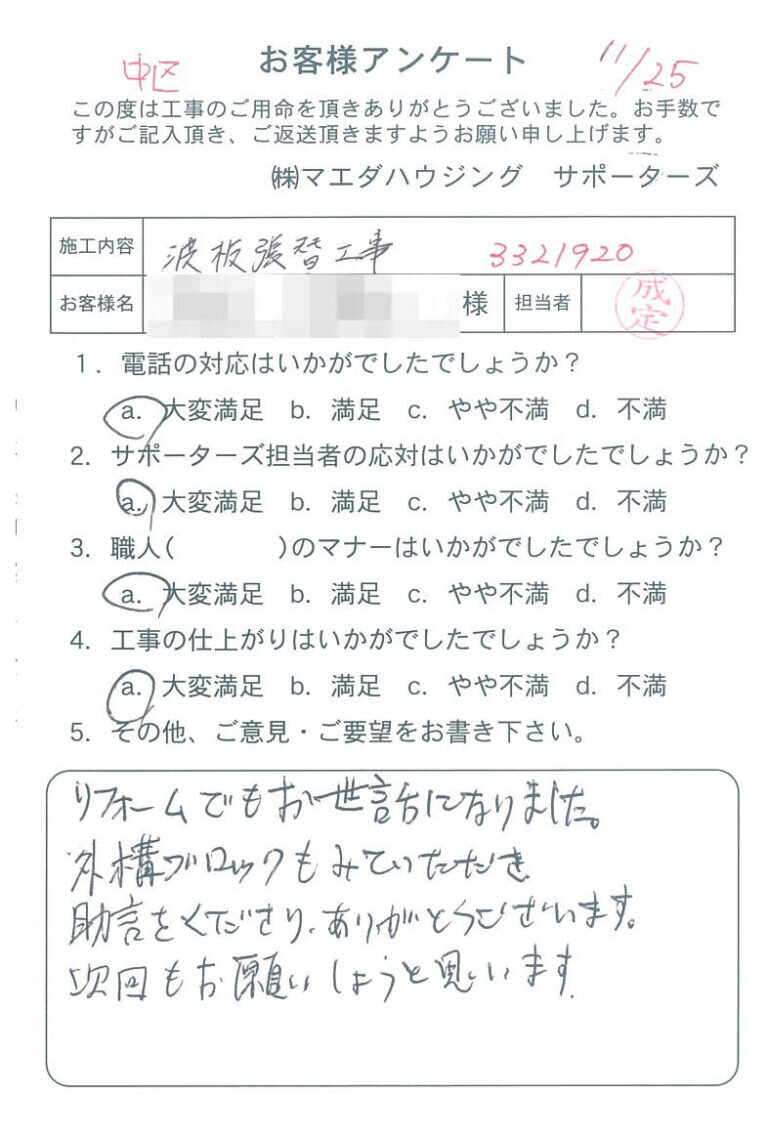 お客様アンケート
中区
11/25
この度は工事のご用命を頂きありがとうございました。お手数で
すがご記入頂き、ご返送頂きますようお願い申し上げます。
㈱マエダハウジング サポーターズ
施工内容 波板張替工事 3321920
お客様名 様 担当者 成定
1. 電話の対応はいかがでしたでしょうか?
a. 大変満足 b. 満足 c. やや不満 d. 不満
2. サポーターズ担当者の応対はいかがでしたでしょうか?
a. 大変満足 b. 満足 c. やや不満 d. 不満
3. 職人( )のマナーはいかがでしたでしょうか?
a. 大変満足 b. 満足 c. やや不満 d. 不満
4. 工事の仕上がりはいかがでしたでしょうか?
a. 大変満足 b. 満足 c. やや不満 d. 不満
5. その他、ご意見・ご要望をお書き下さい。
リフォームでもお世話になりました。
外構ブロックもみていただき
助言をくださり、ありがとうございます。
次回もお願いしようと思います